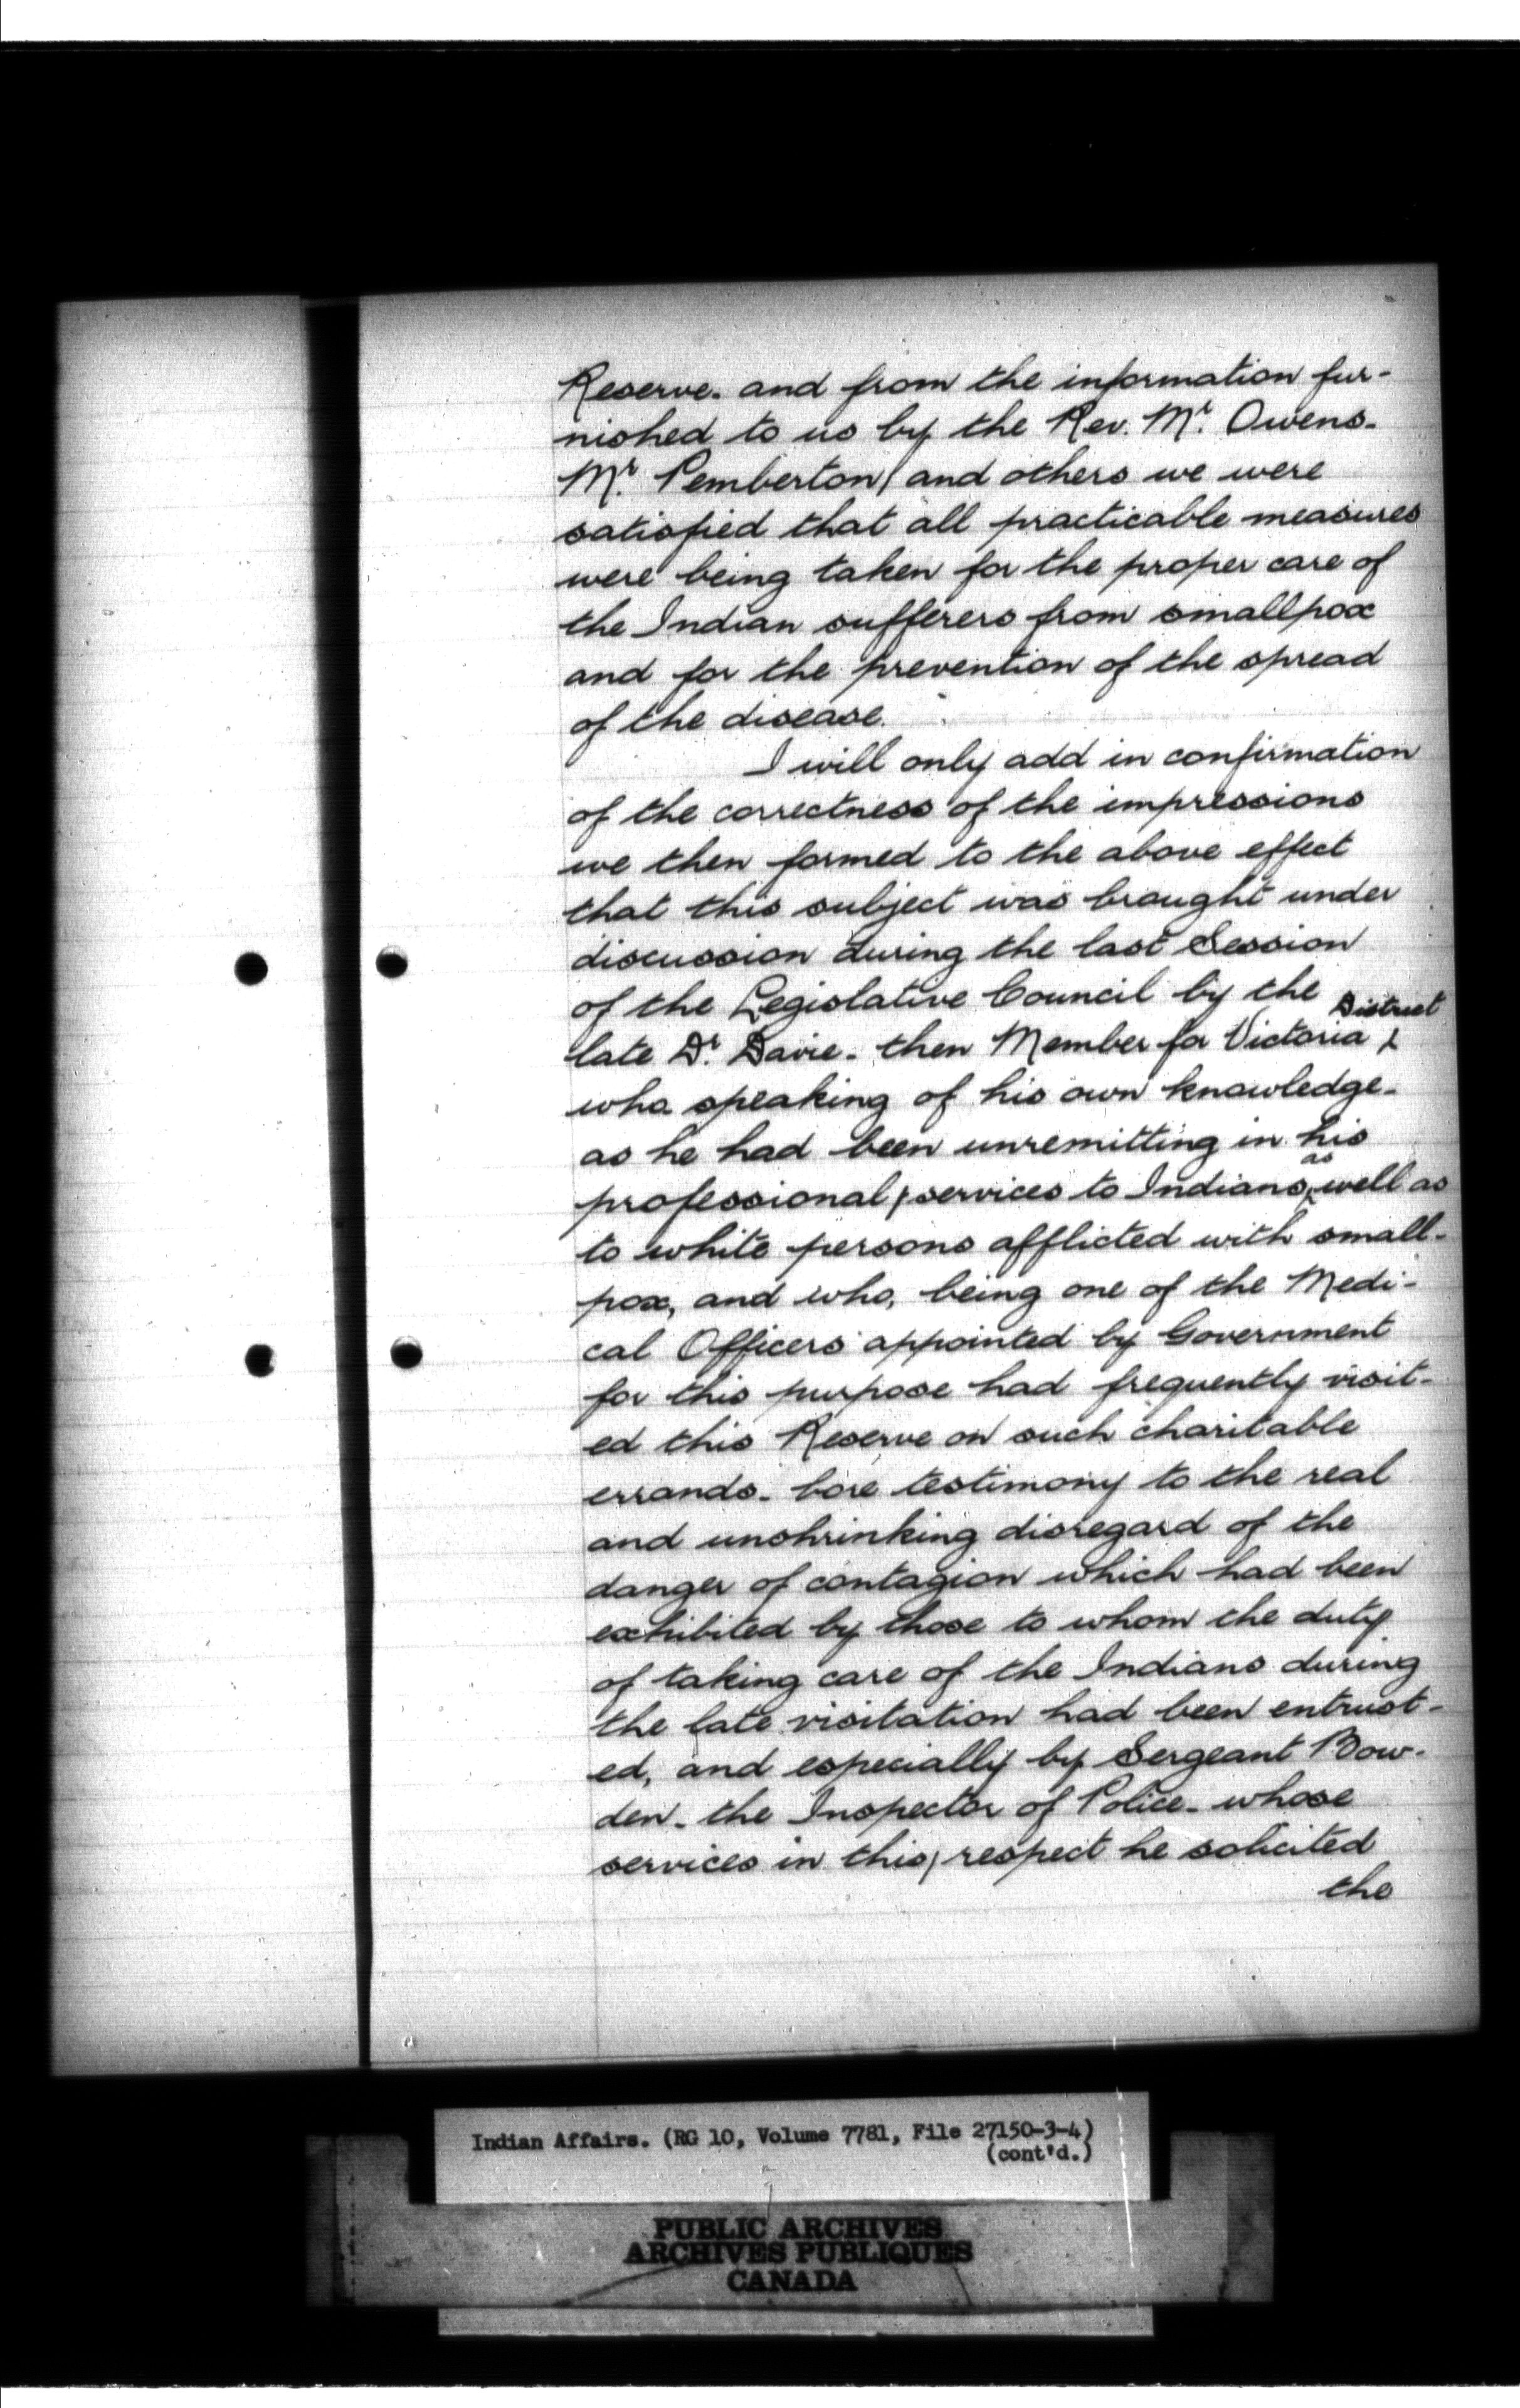 Reserve. and from the information fur-
nished to us by the Rev. Mr. Owens.
Mr. Pemberton and others we were
satisfied that all practicable measures
were being taken for the proper care of
the Indian sufferers from smallpox
and for the prevention of the spread
of the disease.
I will only add in confirmation
of the correctness of the impressions
we then formed to the above effect
that this subject was brought under
discussion during the last Session
of the Legislative Council by the
late Dr. Davie. then Member for Victoria District
who speaking of his own knowledge.
as he had been unremitting in his
professional services to Indians as well as
to white persons afflicted with small-
pox, and who, being one of the Medi-
cal Officers appointed by Government
for this purpose had frequently visit-
ed this Reserve on such charitable
errands. bore testimony to the real
and unshrinking disregard of the
danger of contagion which had been
exhibited by those to whom the duty
of taking care of the Indians during
the late visitation had been entrust-
ed, and especially by Sergeant Bow-
den. the Inspector of Police. whose
services in this respect he solicited
the
Indian Affairs. (RG 10, Volume 7781, File 27150-3-4)
(cont'd.)
PUBLIC ARCHIVES
ARCHIVES PUBLIQUES
CANADA